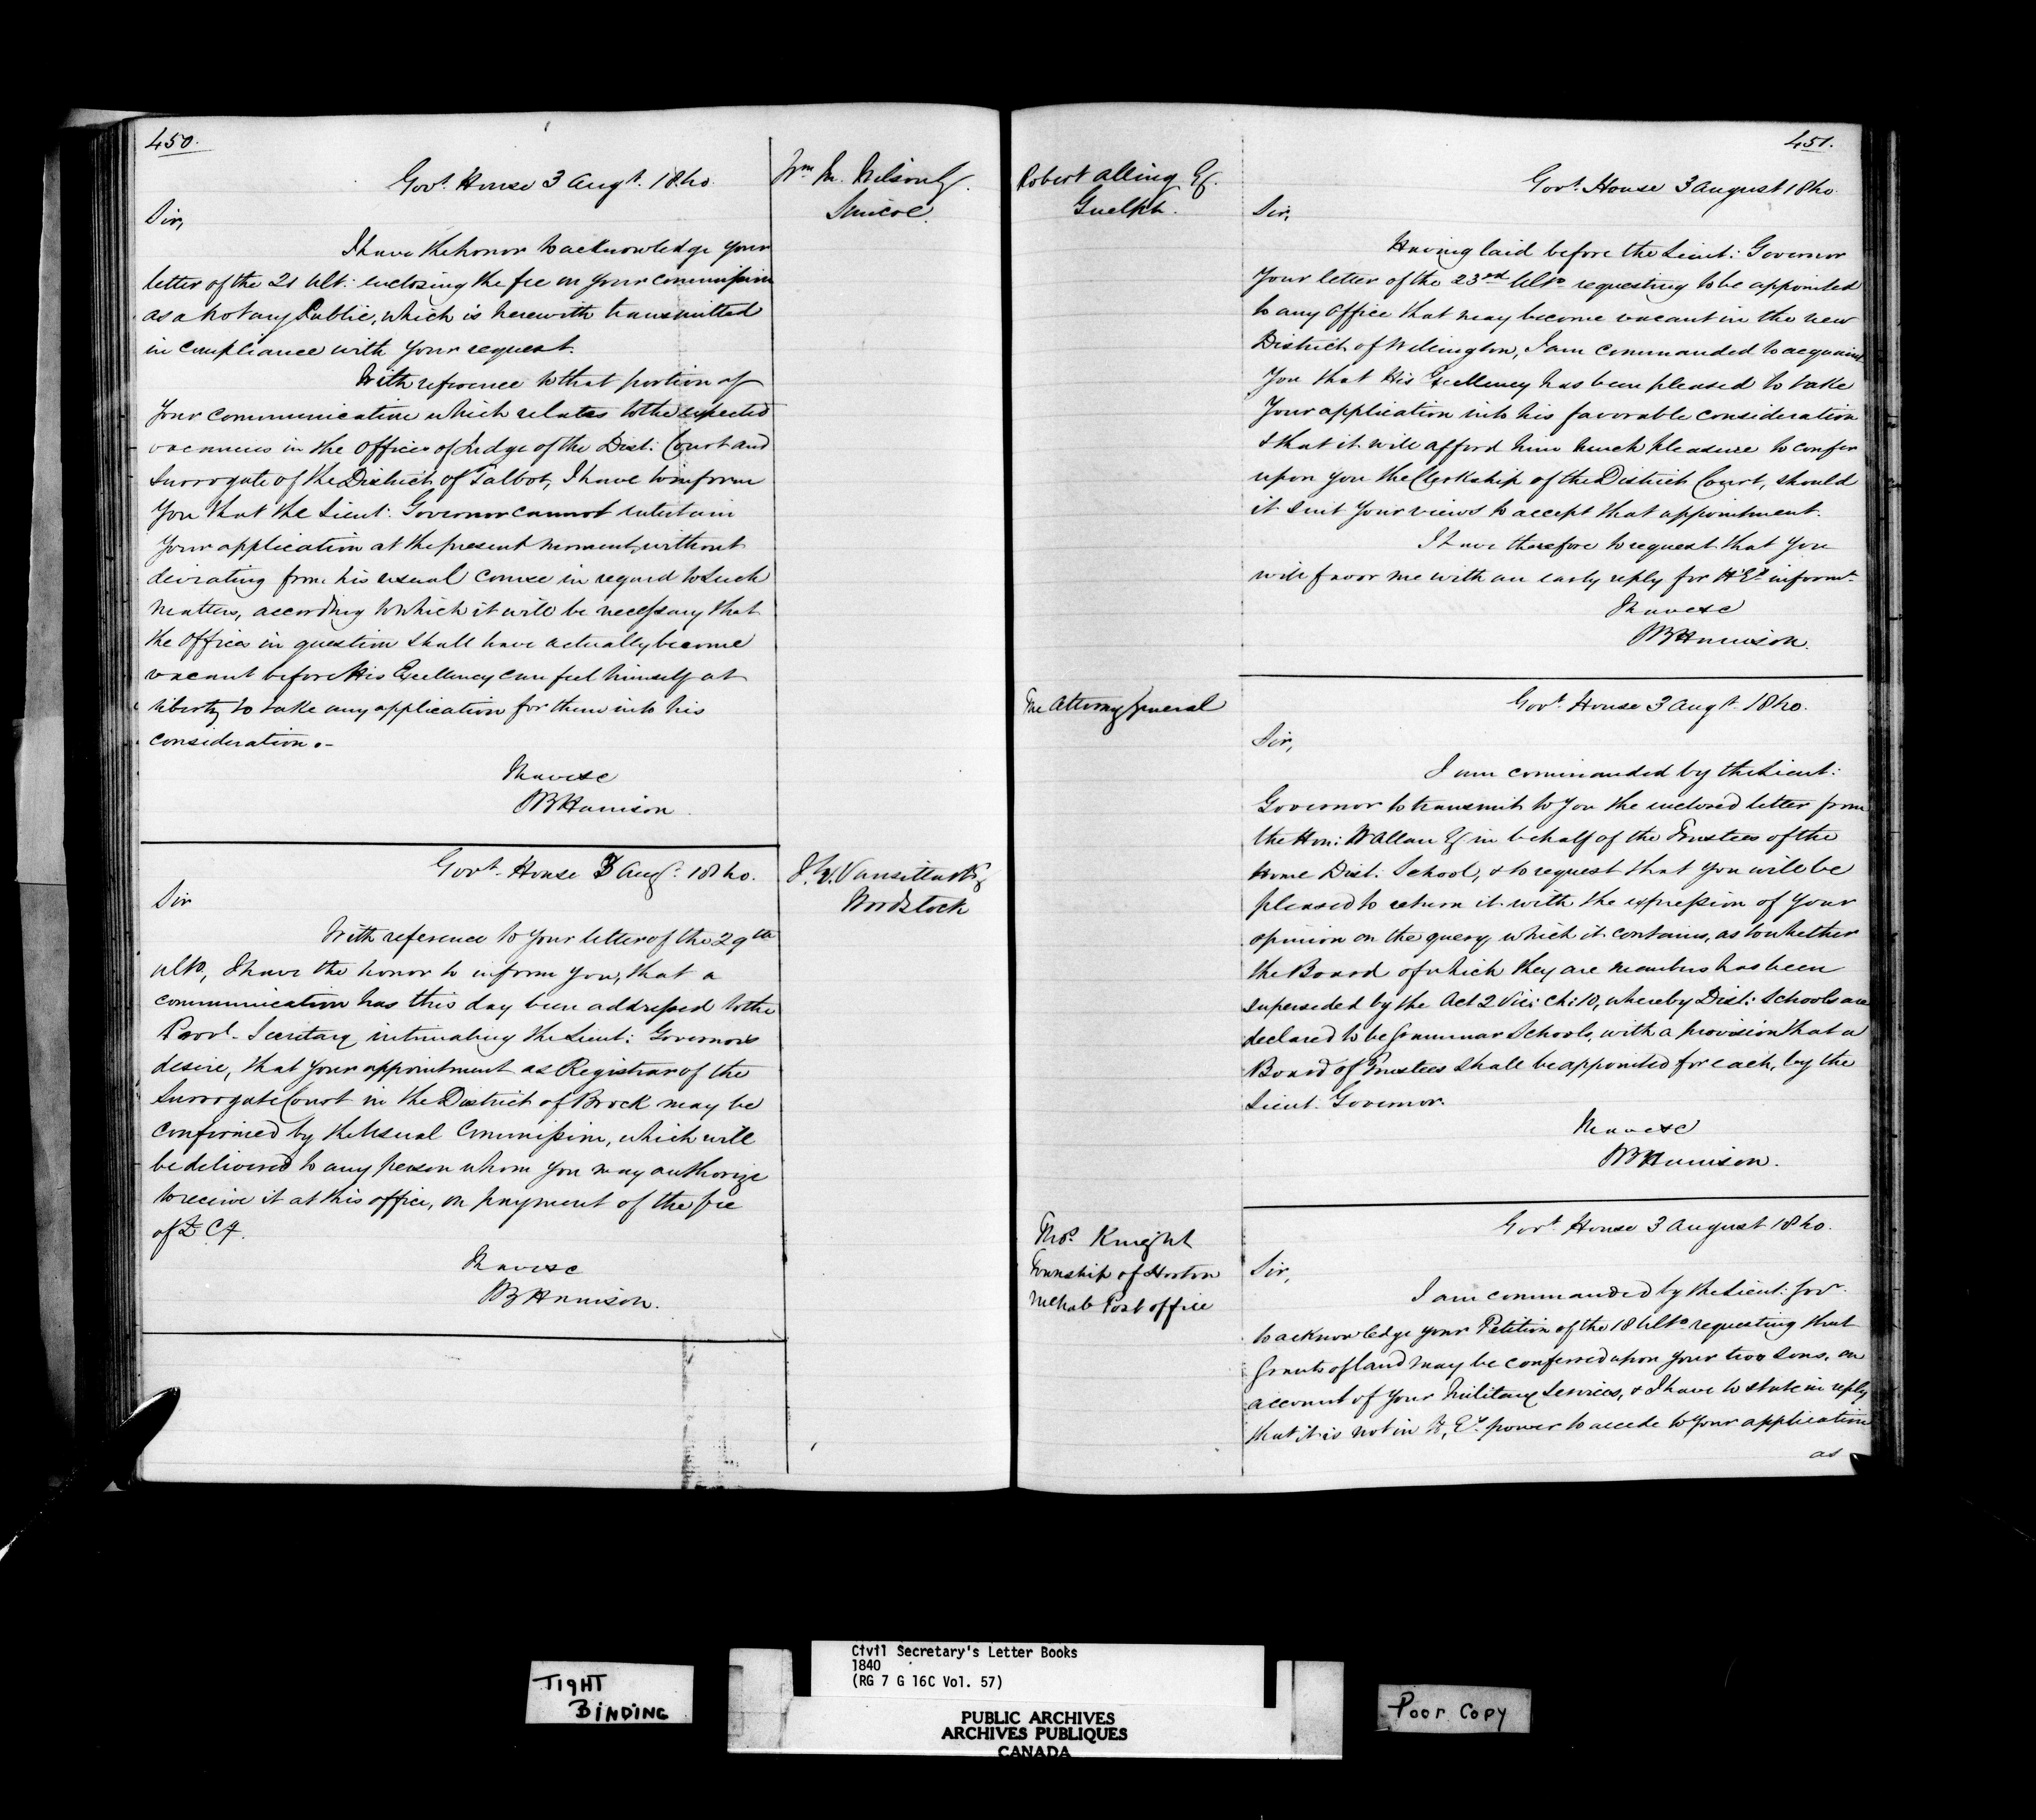 450.
Govt. House 3 Augt. 1840.
Wm M. Wilson Esq.
Simcoe.
Sir,
I have the honor to acknowledge your
letter of the 21 Ult: enclosing the fee on your commission
as a Notary Public, which is herewith transmitted
in compliance with your request.
With reference to that portion of
your communication which relates to the expected
vacancies in the Offices of Judge of the Dist: Court and
Surrogate of the District of Talbot, I have to inform
you that the Lieut: Governor cannot entertain
your application at the present moment, without
deviating from his usual course in regard to such
matters, according to which it will be necessary that
the Offices in question shall have actually become
vacant before His Excellency can feel himself at
liberty to take any application for them into his
consideration.-
I have &c
SB Harrison
Govt. House 3 Aug. 1840.
J. G. Vansittart Esq
Woodstock
Sir
With reference to your letter of the 29th
Ulto, I have the honor to inform you, that a
communication has this day been addressed to the
Provl. Secretary intimating the Lieut: Governor's
desire, that your appointment as Registrar of the
Surrogate Court in the District of Brock may be
confirmed by the Usual Commission, which will
be delivered to any person whom you may authorize
to receive it at this office, on payment of the fee
of £
I have &c
SB Harrison.
451.
Robert Alling Esq.
Guelph.
Govt. House 3 August 1840.
Sir,
Having laid before the Lieut: Governor
Your letter of the 23rd Ulto requesting to be appointed
to any Office that may become vacant in the new
District of Wellington, I am commanded to acquaint
You that His Excellency has been pleased to take
Your application into his favorable consideration
& that it will afford him much pleasure to confer
upon you the Clerkship of the District Court, should
it suit your views to accept that appointment.
I have therefore to request that you
will favor me with an early reply for H.E's informt.
I have &c
SB Harrison.
The Attorney General
Govt. House 3 Augt. 1840.
Sir,
I am commanded by the Lieut:
Governor to transmit to you the enclosed letter from
the Hon: W Allan Esq in behalf of the Trustees of the
Home Dist: School, & to request that you will be
pleased to return it with the expression of your
opinion on the query which it contains, as to whether
the Board of which they are members has been
superseded by the Act 2 Vic: Ch: 10, whereby Dist: Schools are
declared to be Grammar Schools, with a provision that a
Board of Trustees shall be appointed for each, by the
Lieut. Governor.
I have &c
SB Harrison.
Thos. Knight
Township of Horton
McNab Post office
Govt. House 3 August 1840.
Sir,
I am commanded by the Lieut: Govr.
to acknowledge your Petition of the 18 Ulto requesting that
Grants of land may be conferred upon your two sons, on
account of your Military Services, & I have to state in reply
that it is not in H.E's. power to accede to your application
as
TIGHT
BINDING
Civil Secretary's Letter Books
1840
(RG 7 G 16C Vol. 57)
PUBLIC ARCHIVES
ARCHIVES PUBLIQUES
CANADA
Poor Copy